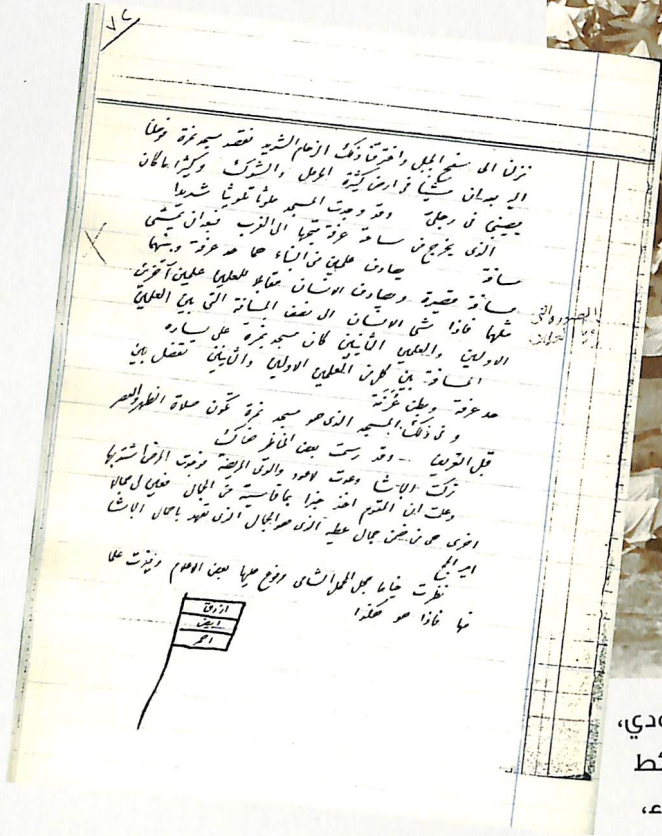 ٧٤
نزلنا الى سفح الجبل واخترقنا ذلك الزحام الشديد نقصد مسجد نمرة فوصلنا
اليه بعد ان مشينا فى ارض كثيرة الرمل والشوك وكثيرا ما كان
يصيبنى فى رجلى وقد وجدت المسجد ملوثا تلويثا شديدا
الذى يخرج من ساحة عرفة متجها الى الغرب فبعد ان يمشى
مسافة يصادف علمين من البناء هما حد عرفة وبينهما
مسافة قصيرة ويصادف الانسان مقابلا للعلمين علمين آخرين
مثلها فاذا مشى الانسان الى نصف المسافة التى بين العلمين
الاولين والعلمين الثانيين كان مسجد نمرة على يساره
المسافة بين كل من العلمين الاولين والثانيين تفصل بين
حد عرفة وبطن عرنة
وفى ذلك المسجد الذى هو مسجد نمرة تكون صلاة الظهر والعصر
قبل التعريف وقد رسمت بعض المناظر هناك
تركت الباشا وعدت لاعود والدتى المريضة فوجدت المرض اشتد بها
وعلمت ان المقوم اخذ جزءا بما قاسيه من الجمال
اخرى هى من ضمن جمال عطيه الذى هو الجمال الذى تعهد باحمال الباشا
امير الحج
نظرت خياما محل المحمل الشامى رفع عليها بعض الاعلام
منها فاذا هو هكذا
ازرق
ابيض
احمر
الصورة التى
ودي،
ئط
ء،